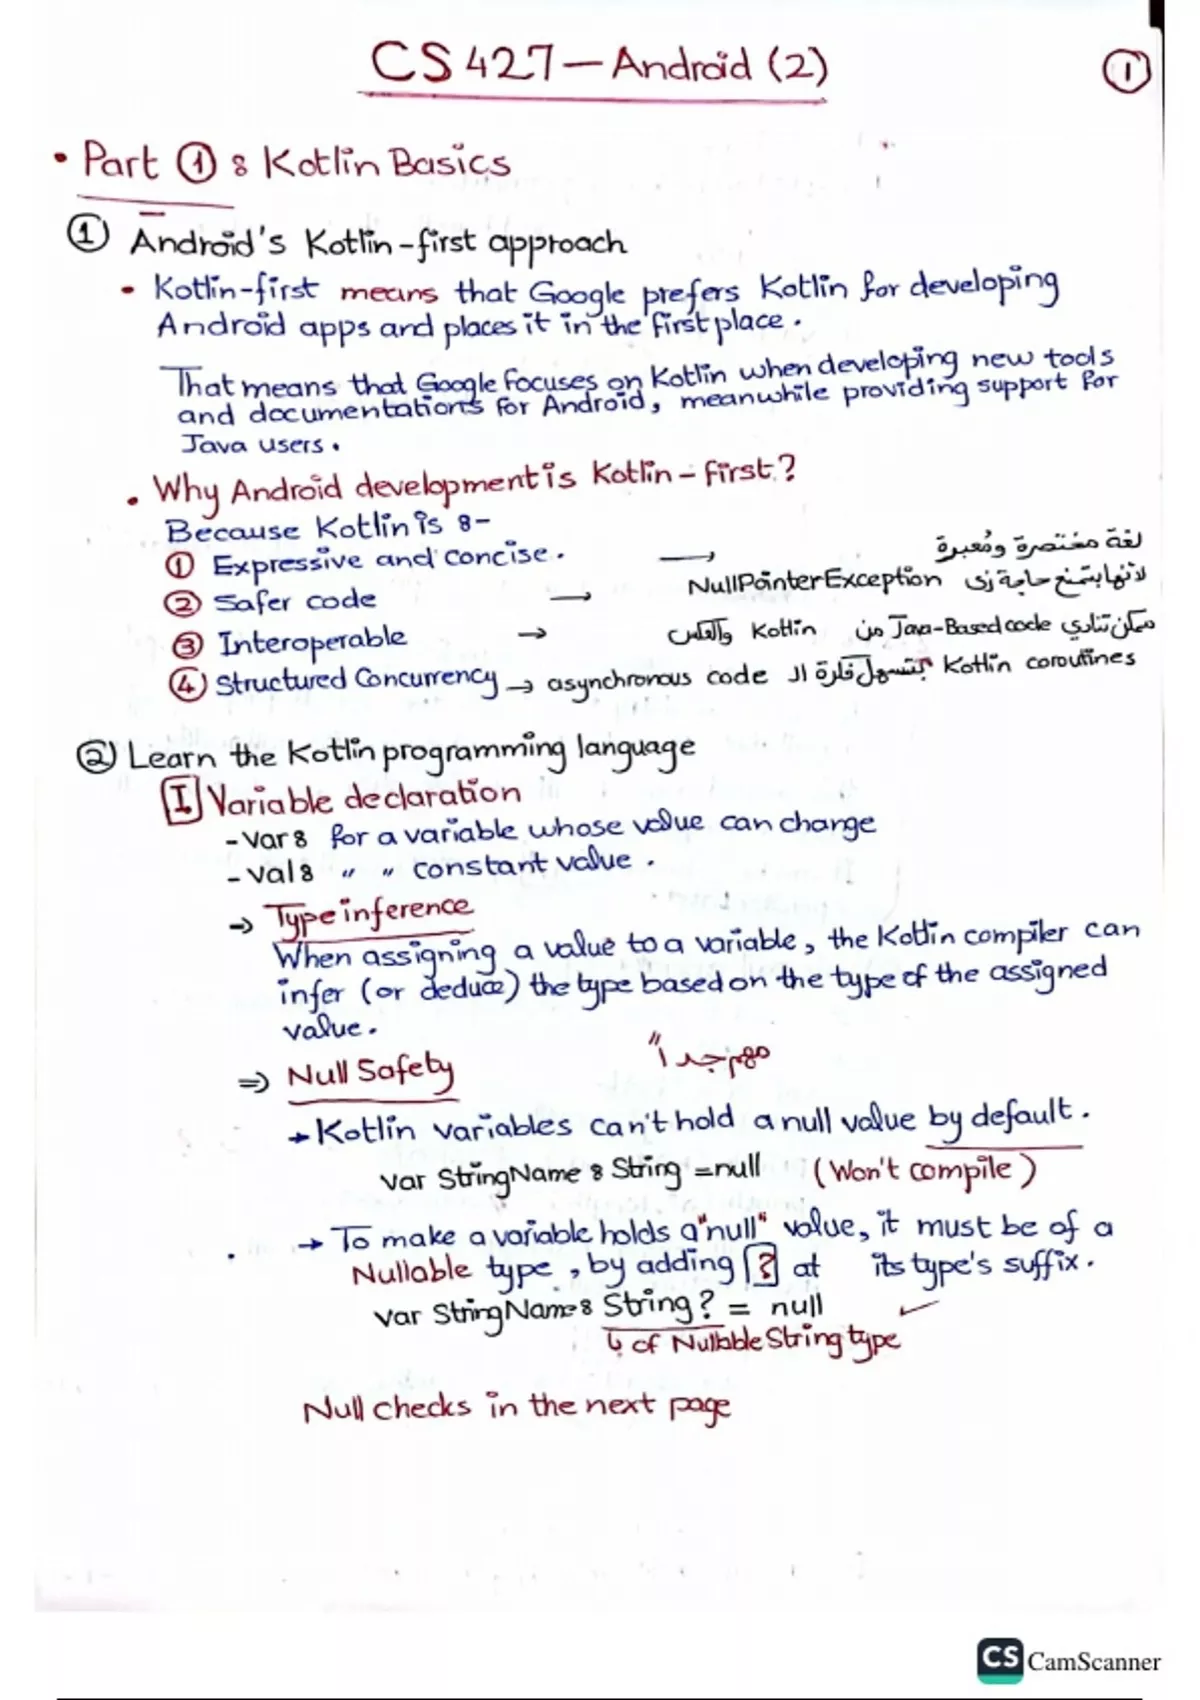 CS 427 — Android (2)
1
• Part ① : Kotlin Basics
① Android's Kotlin-first approach
• Kotlin-first means that Google prefers Kotlin for developing
Android apps and places it in the first place.
That means that Google focuses on Kotlin when developing new tools
and documentations for Android, meanwhile providing support for
Java users.
• Why Android development is Kotlin-first?
Because Kotlin is :-
① Expressive and concise. → لغة مختصرة ومُعبرة
② Safer code → لأنها بتمنع حاجة زى NullPointerException
③ Interoperable → ممكن تنادي Java-Based code من Kotlin والعكس
④ Structured Concurrency → Kotlin coroutines بتسهل فكرة الـ asynchronous code
② Learn the Kotlin programming language
I Variable declaration
- Var : for a variable whose value can change
- Val : " " constant value.
→ Type inference
When assigning a value to a variable, the Kotlin compiler can
infer (or deduce) the type based on the type of the assigned
value.
⇒ Null Safety مهم جداً
→ Kotlin variables can't hold a null value by default.
var StringName : String = null (Won't compile)
→ To make a variable holds a "null" value, it must be of a
Nullable type, by adding ? at its type's suffix.
var StringName : String? = null ✓
↳ of Nullable String type
Null checks in the next page
CS CamScanner